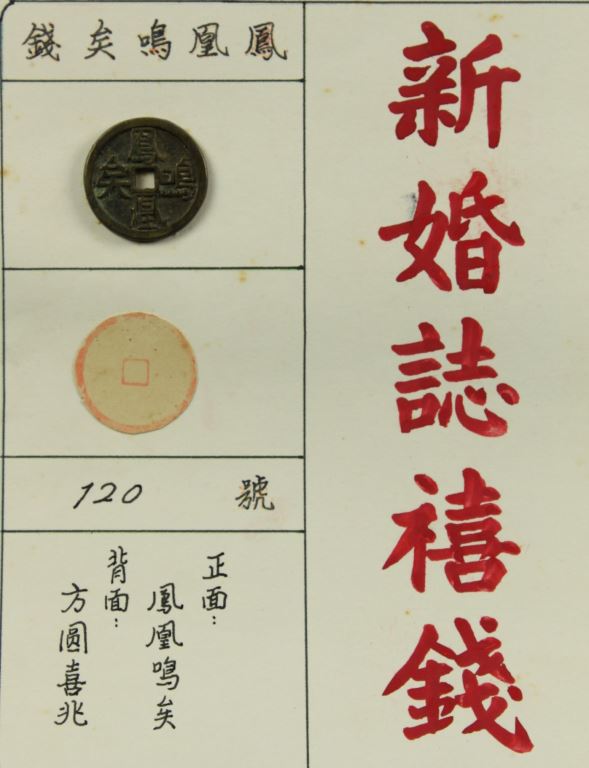 新婚誌禧錢
鳳凰鳴矣錢
鳳凰鳴矣
120 號
正面：
鳳凰鳴矣
背面：
方圓喜兆